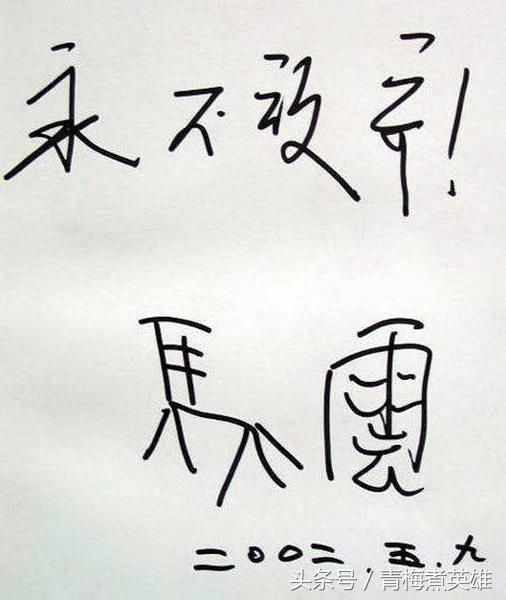 永不放弃!
馬雲
二〇〇二.五.九
头条号 / 青梅煮英雄